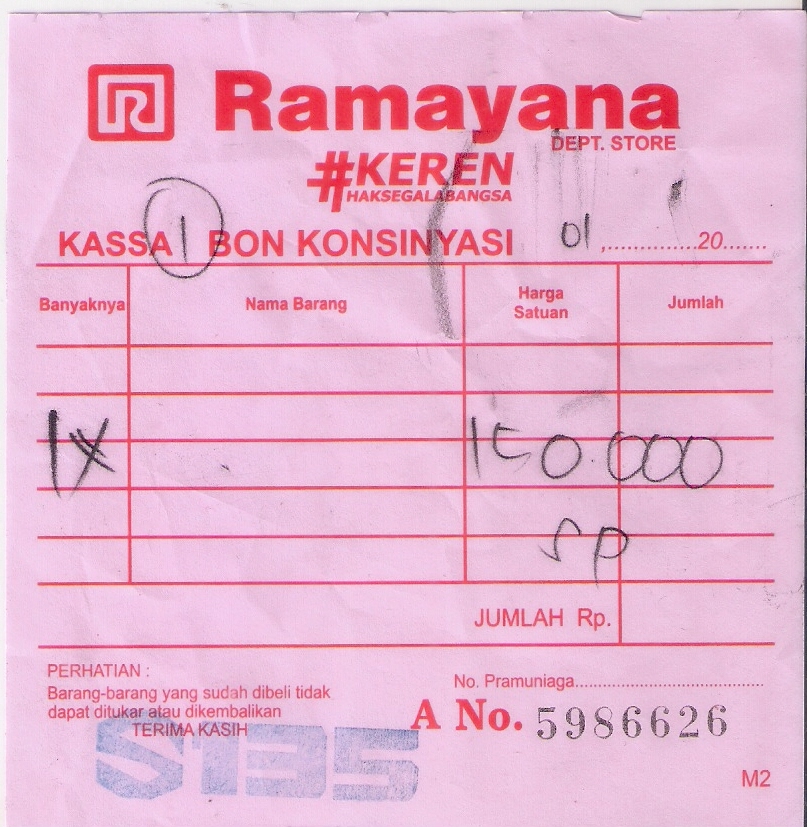 Ramayana
DEPT. STORE
#KEREN
HAKSEGALABANGSA
KASSA 1 BON KONSINYASI 01 ,...............20.......
Banyaknya Nama Barang Harga Satuan Jumlah
1X 150.000
SP
JUMLAH Rp.
PERHATIAN :
Barang-barang yang sudah dibeli tidak
dapat ditukar atau dikembalikan
TERIMA KASIH
No. Pramuniaga..........................................
A No. 5986626
S135
M2